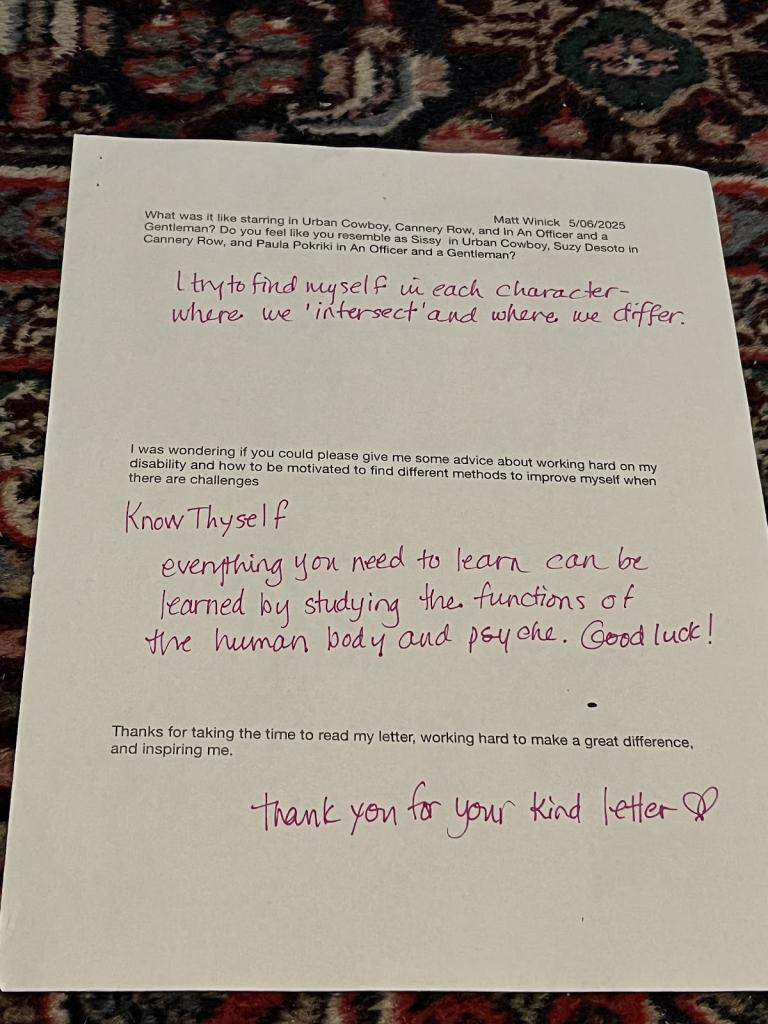 Matt Winick 5/06/2025
What was it like starring in Urban Cowboy, Cannery Row, and In An Officer and a
Gentleman? Do you feel like you resemble as Sissy in Urban Cowboy, Suzy Desoto in
Cannery Row, and Paula Pokriki in An Officer and a Gentleman?
I try to find myself in each character-
where we 'intersect' and where we differ.
I was wondering if you could please give me some advice about working hard on my
disability and how to be motivated to find different methods to improve myself when
there are challenges
Know Thyself
everything you need to learn can be
learned by studying the functions of
the human body and psyche. Good luck!
Thanks for taking the time to read my letter, working hard to make a great difference,
and inspiring me.
thank you for your kind letter